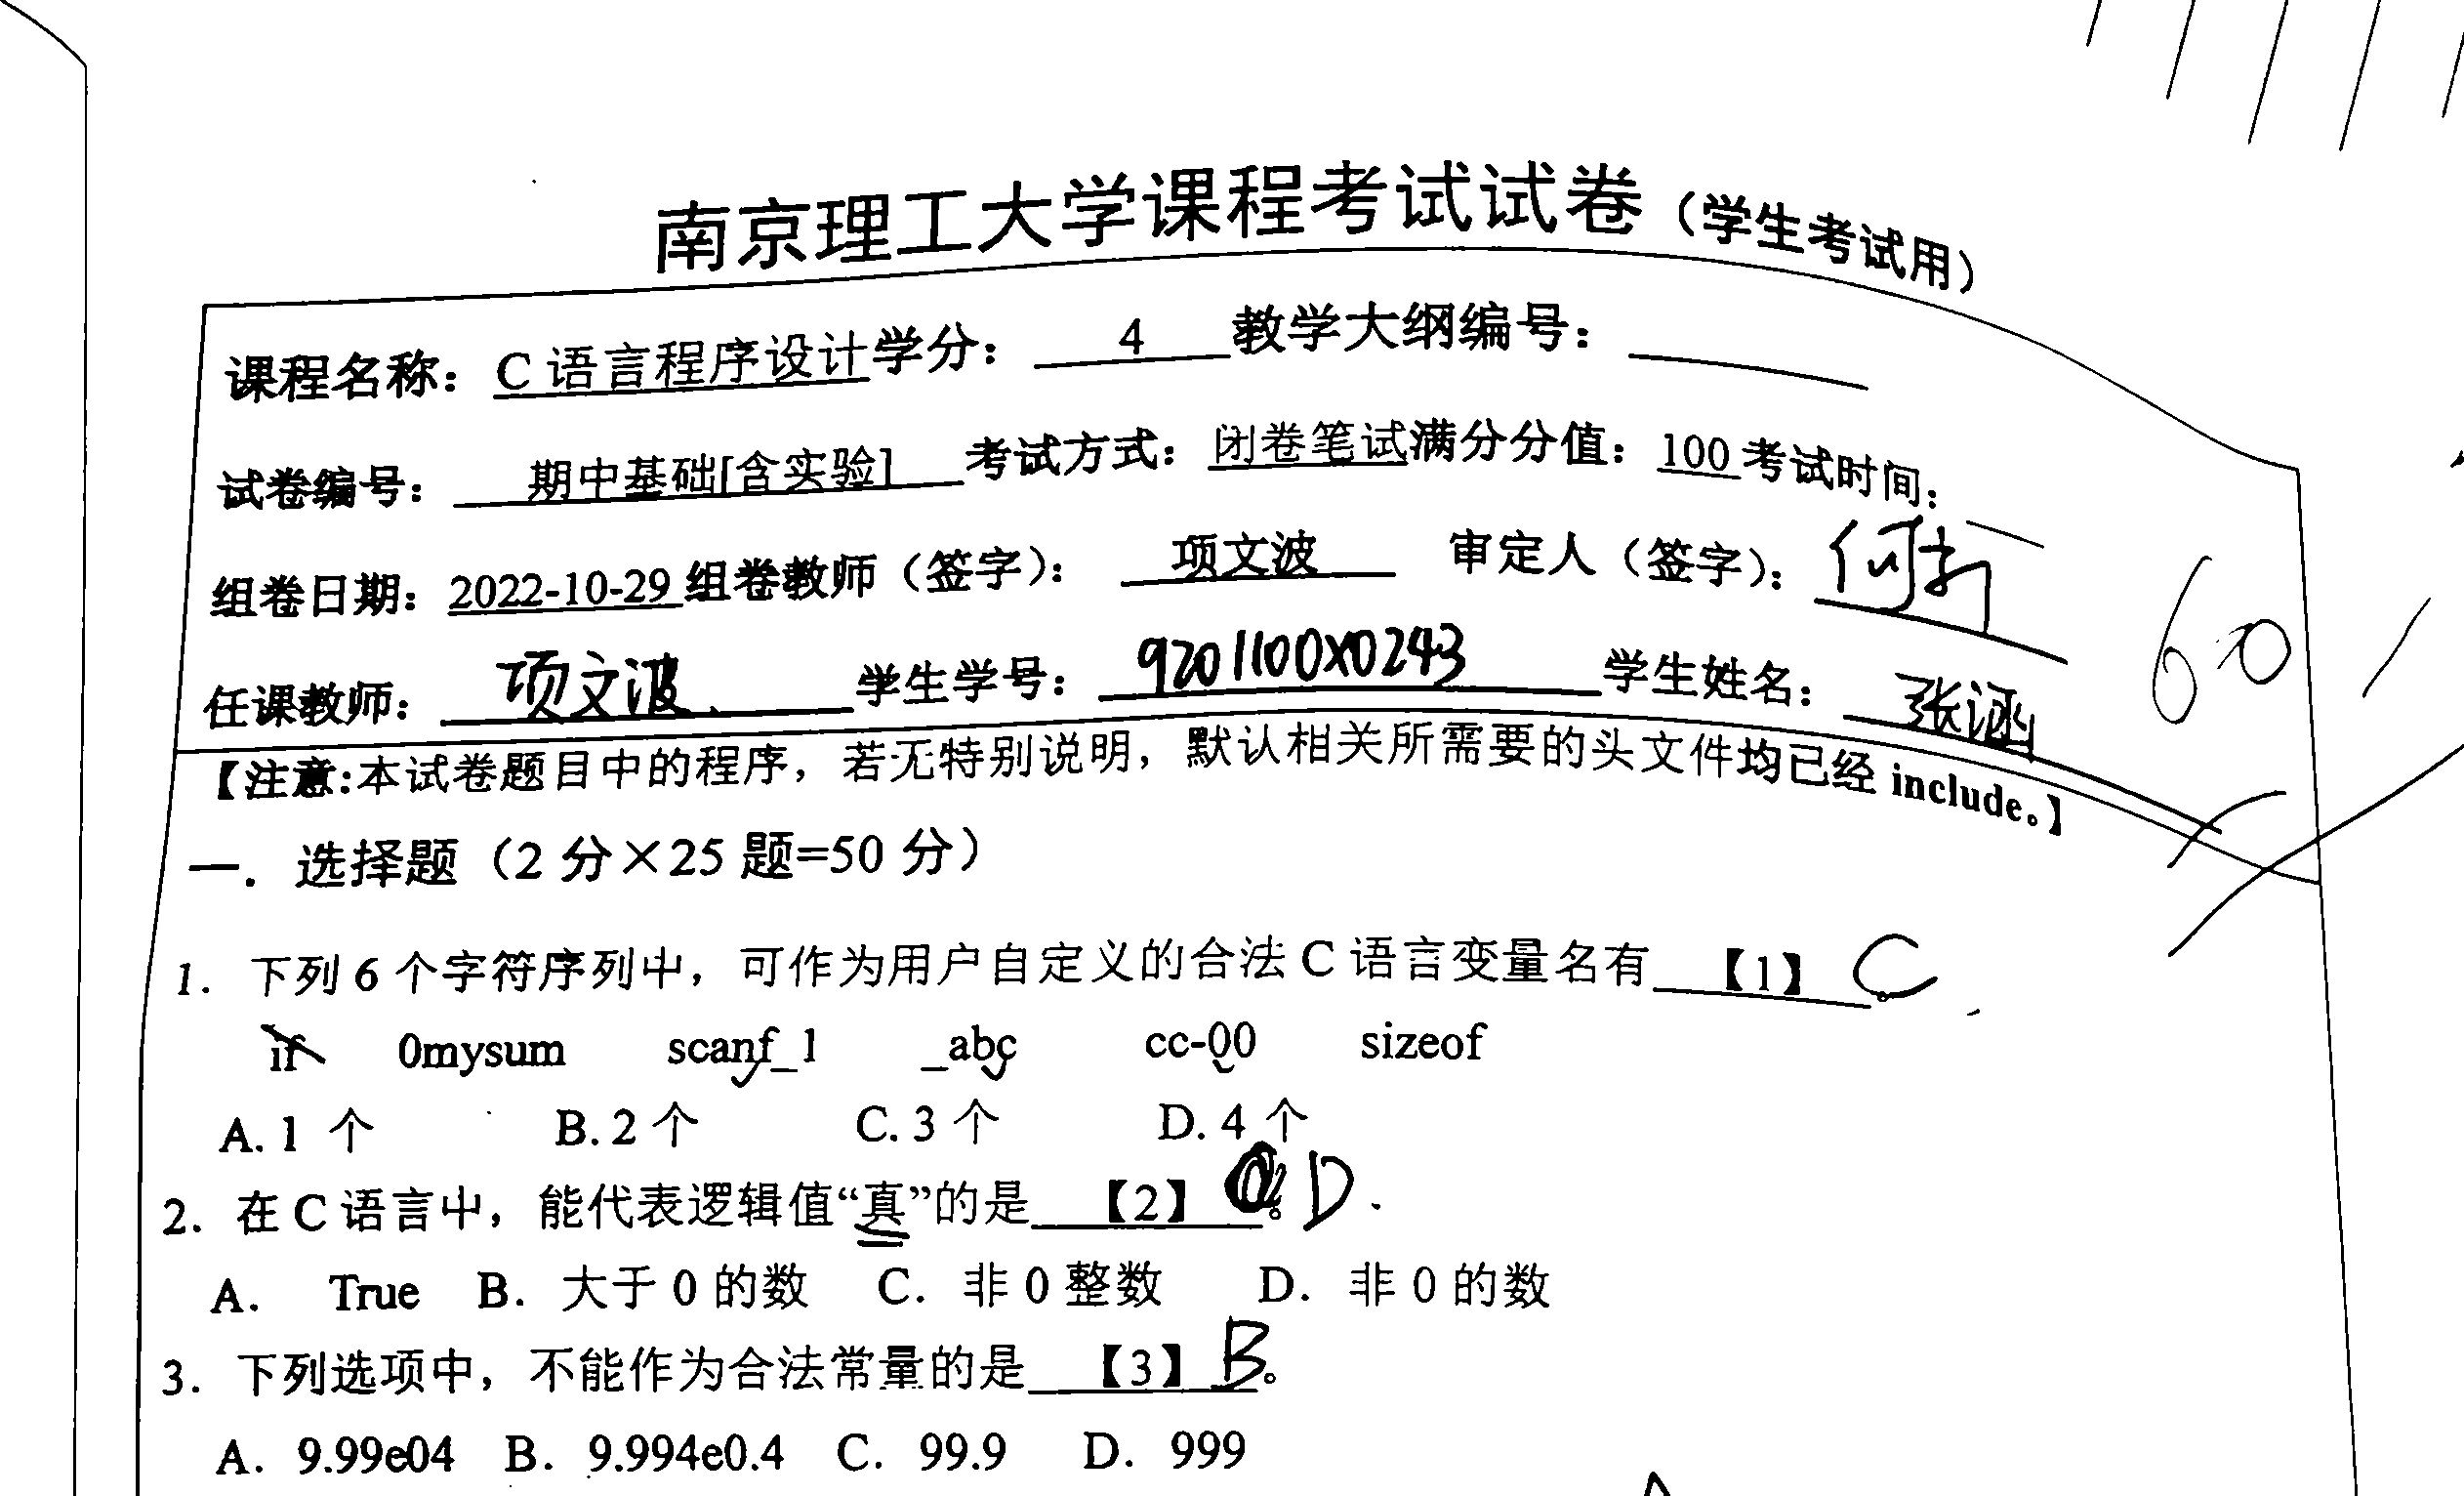 南京理工大学课程考试试卷（学生考试用）
课程名称：C 语言程序设计学分： 4 教学大纲编号：
试卷编号： 期中基础[含实验] 考试方式：闭卷笔试满分分值：100 考试时间：
组卷日期：2022-10-29 组卷教师（签字）： 项文波 审定人（签字）：
任课教师： 项文波 学生学号： 9201100X0243 学生姓名： 张涵
60
【注意:本试卷题目中的程序，若无特别说明，默认相关所需要的头文件均已经 include。】
一．选择题（2 分×25 题=50 分）
1． 下列 6 个字符序列中，可作为用户自定义的合法 C 语言变量名有 【1】 。C
if 0mysum scanf_1 _abc cc-00 sizeof
A. 1 个 B. 2 个 C. 3 个 D. 4 个
2． 在 C 语言中，能代表逻辑值“真”的是 【2】 。D
A． True B． 大于 0 的数 C． 非 0 整数 D． 非 0 的数
3． 下列选项中，不能作为合法常量的是 【3】 B。
A． 9.99e04 B． 9.994e0.4 C． 99.9 D． 999